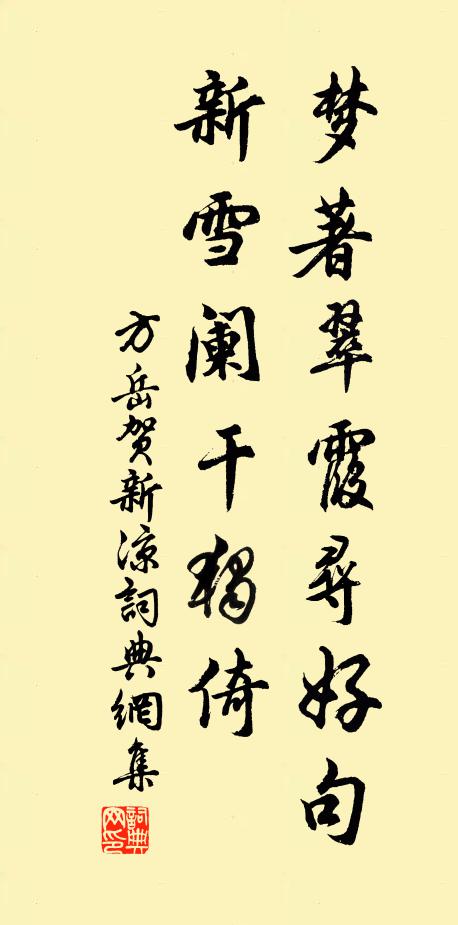 梦著翠霞寻好句
新雪阑干独倚
方岳贺新凉詞典網集
詞典网印